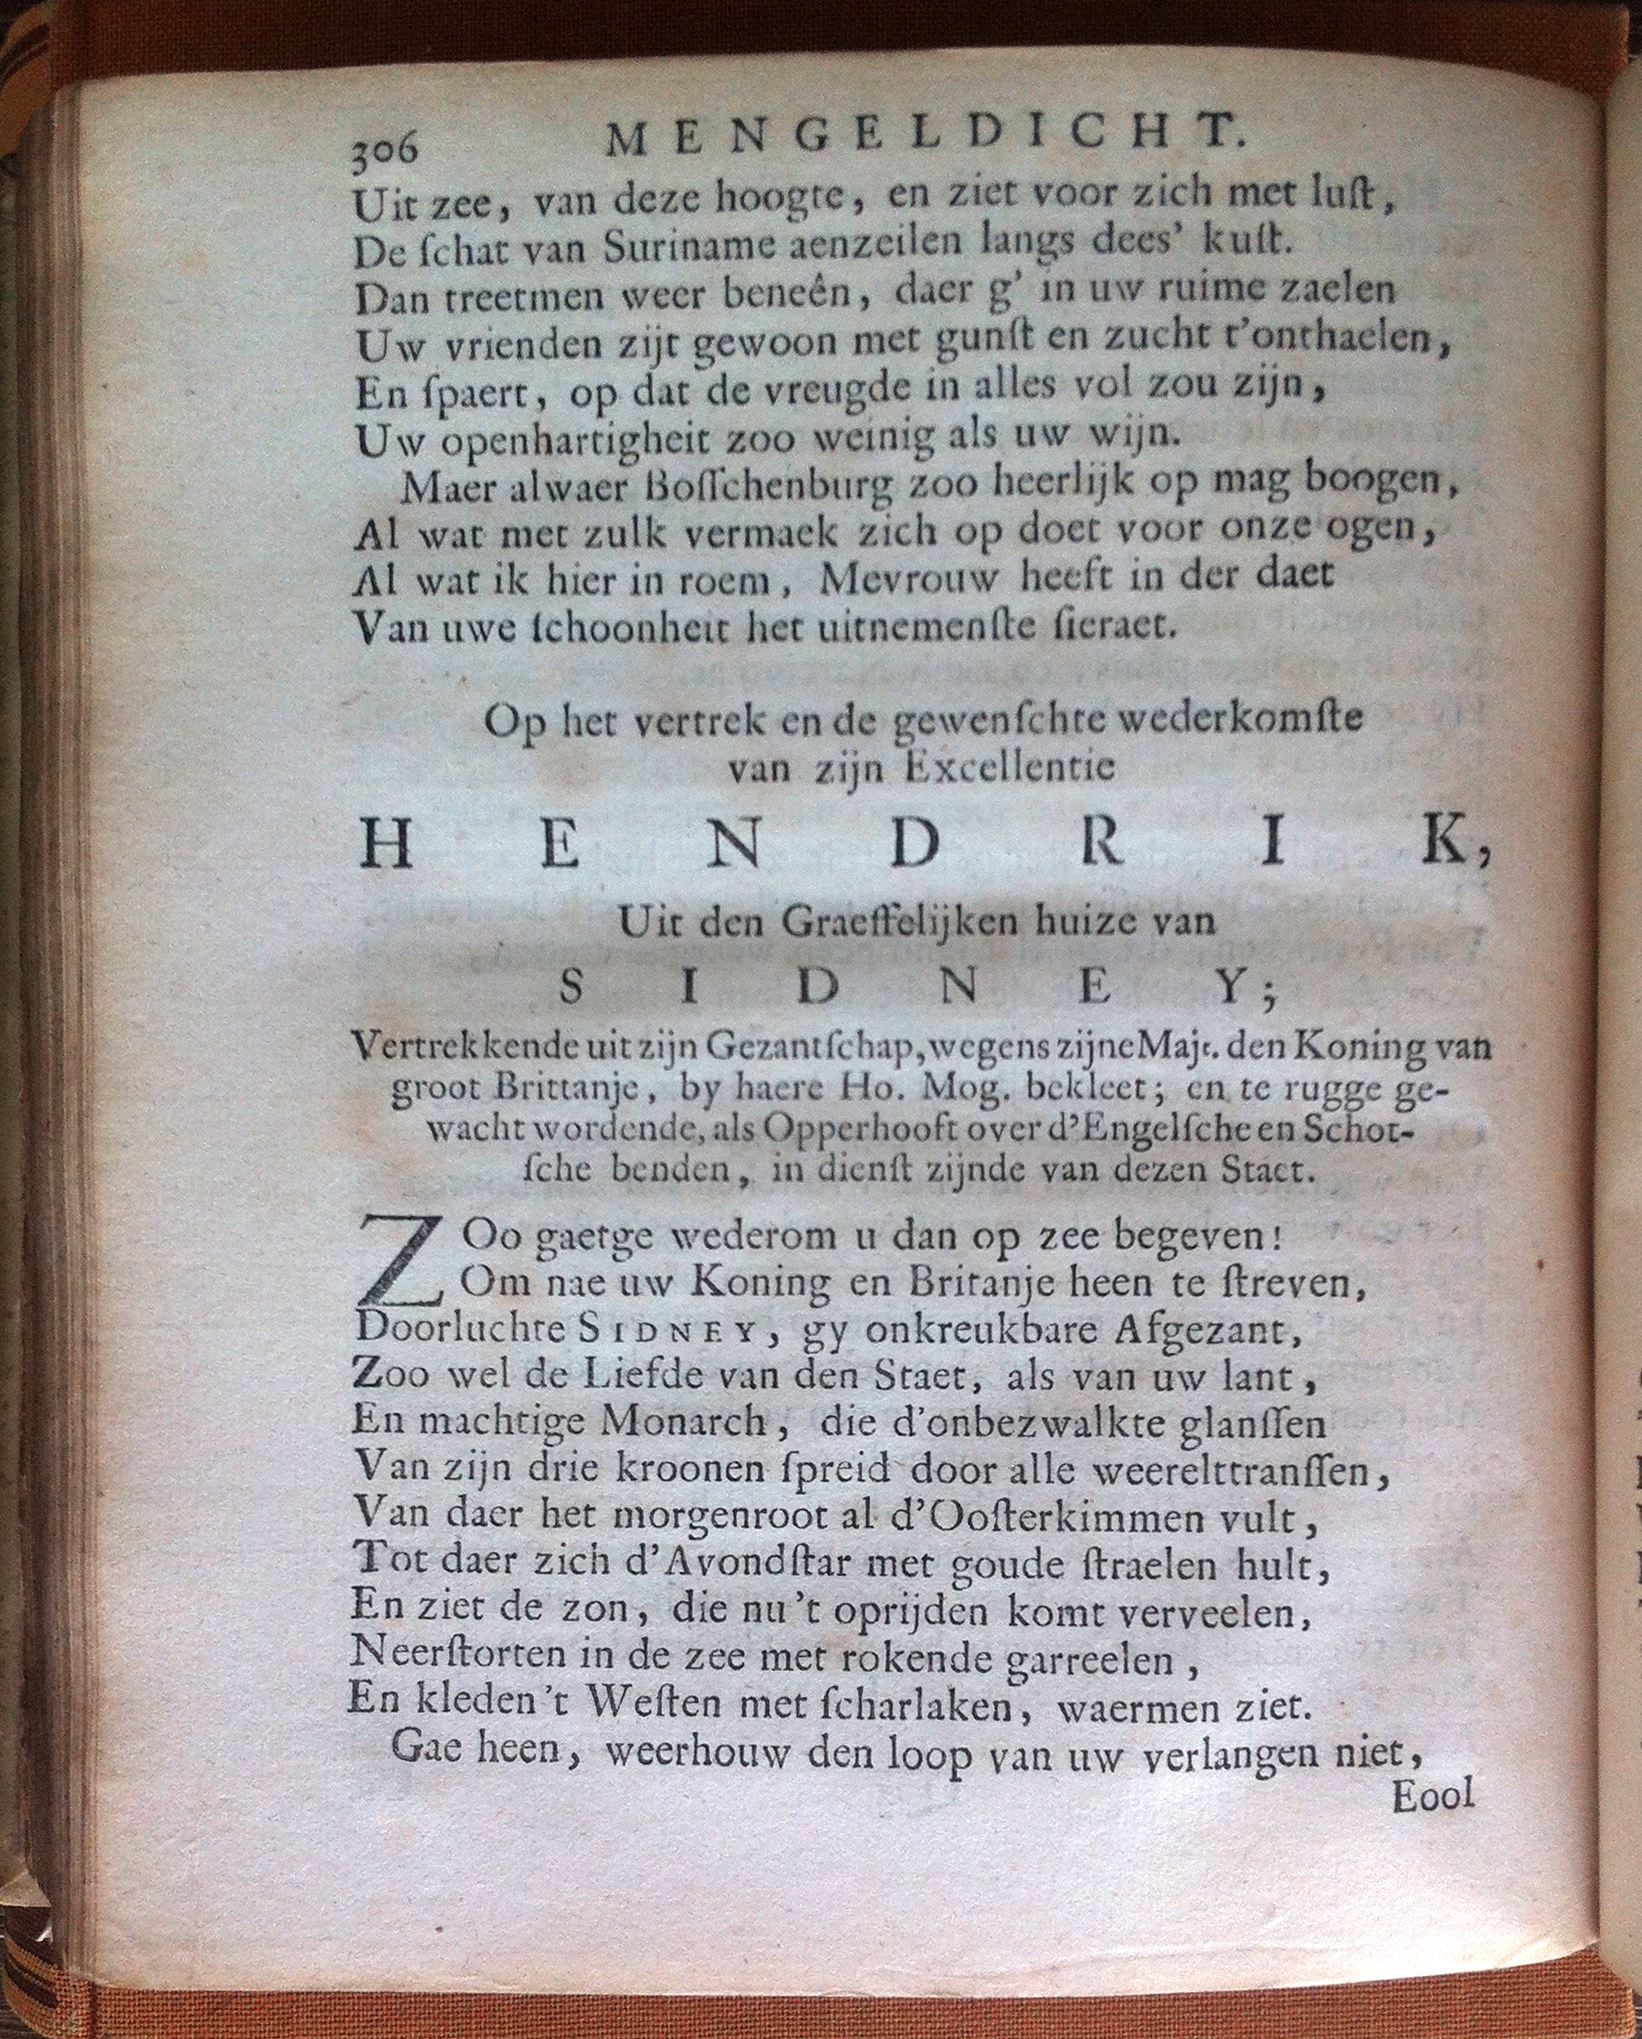 306 MENGELDICHT.
Uit zee, van deze hoogte, en ziet voor zich met luſt,
De ſchat van Suriname aenzeilen langs dees' kuſt.
Dan treetmen weer beneên, daer g' in uw ruime zaelen
Uw vrienden zijt gewoon met gunſt en zucht t'onthaelen,
En ſpaert, op dat de vreugde in alles vol zou zijn,
Uw openhartigheit zoo weinig als uw wijn.
Maer alwaer Boſſchenburg zoo heerlijk op mag boogen,
Al wat met zulk vermaek zich op doet voor onze ogen,
Al wat ik hier in roem, Mevrouw heeft in der daet
Van uwe ſchoonheit het uitnemenſte ſieraet.
Op het vertrek en de gewenſchte wederkomſte
van zijn Excellentie
HENDRIK,
Uit den Graeffelijken huize van
SIDNEY;
Vertrekkende uit zijn Gezantſchap, wegens zijne Majt. den Koning van
groot Brittanje, by haere Ho. Mog. bekleet; en te rugge ge-
wacht wordende, als Opperhooft over d'Engelſche en Schot-
ſche benden, in dienſt zijnde van dezen Staet.
ZOo gaetge wederom u dan op zee begeven!
Om nae uw Koning en Britanje heen te ſtreven,
Doorluchte SIDNEY, gy onkreukbare Afgezant,
Zoo wel de Liefde van den Staet, als van uw lant,
En machtige Monarch, die d'onbezwalkte glanſſen
Van zijn drie kroonen ſpreid door alle weerelttranſſen,
Van daer het morgenroot al d'Ooſterkimmen vult,
Tot daer zich d'Avondſtar met goude ſtraelen hult,
En ziet de zon, die nu 't oprijden komt verveelen,
Neerſtorten in de zee met rokende garreelen,
En kleden 't Weſten met ſcharlaken, waermen ziet.
Gae heen, weerhouw den loop van uw verlangen niet,
Eool